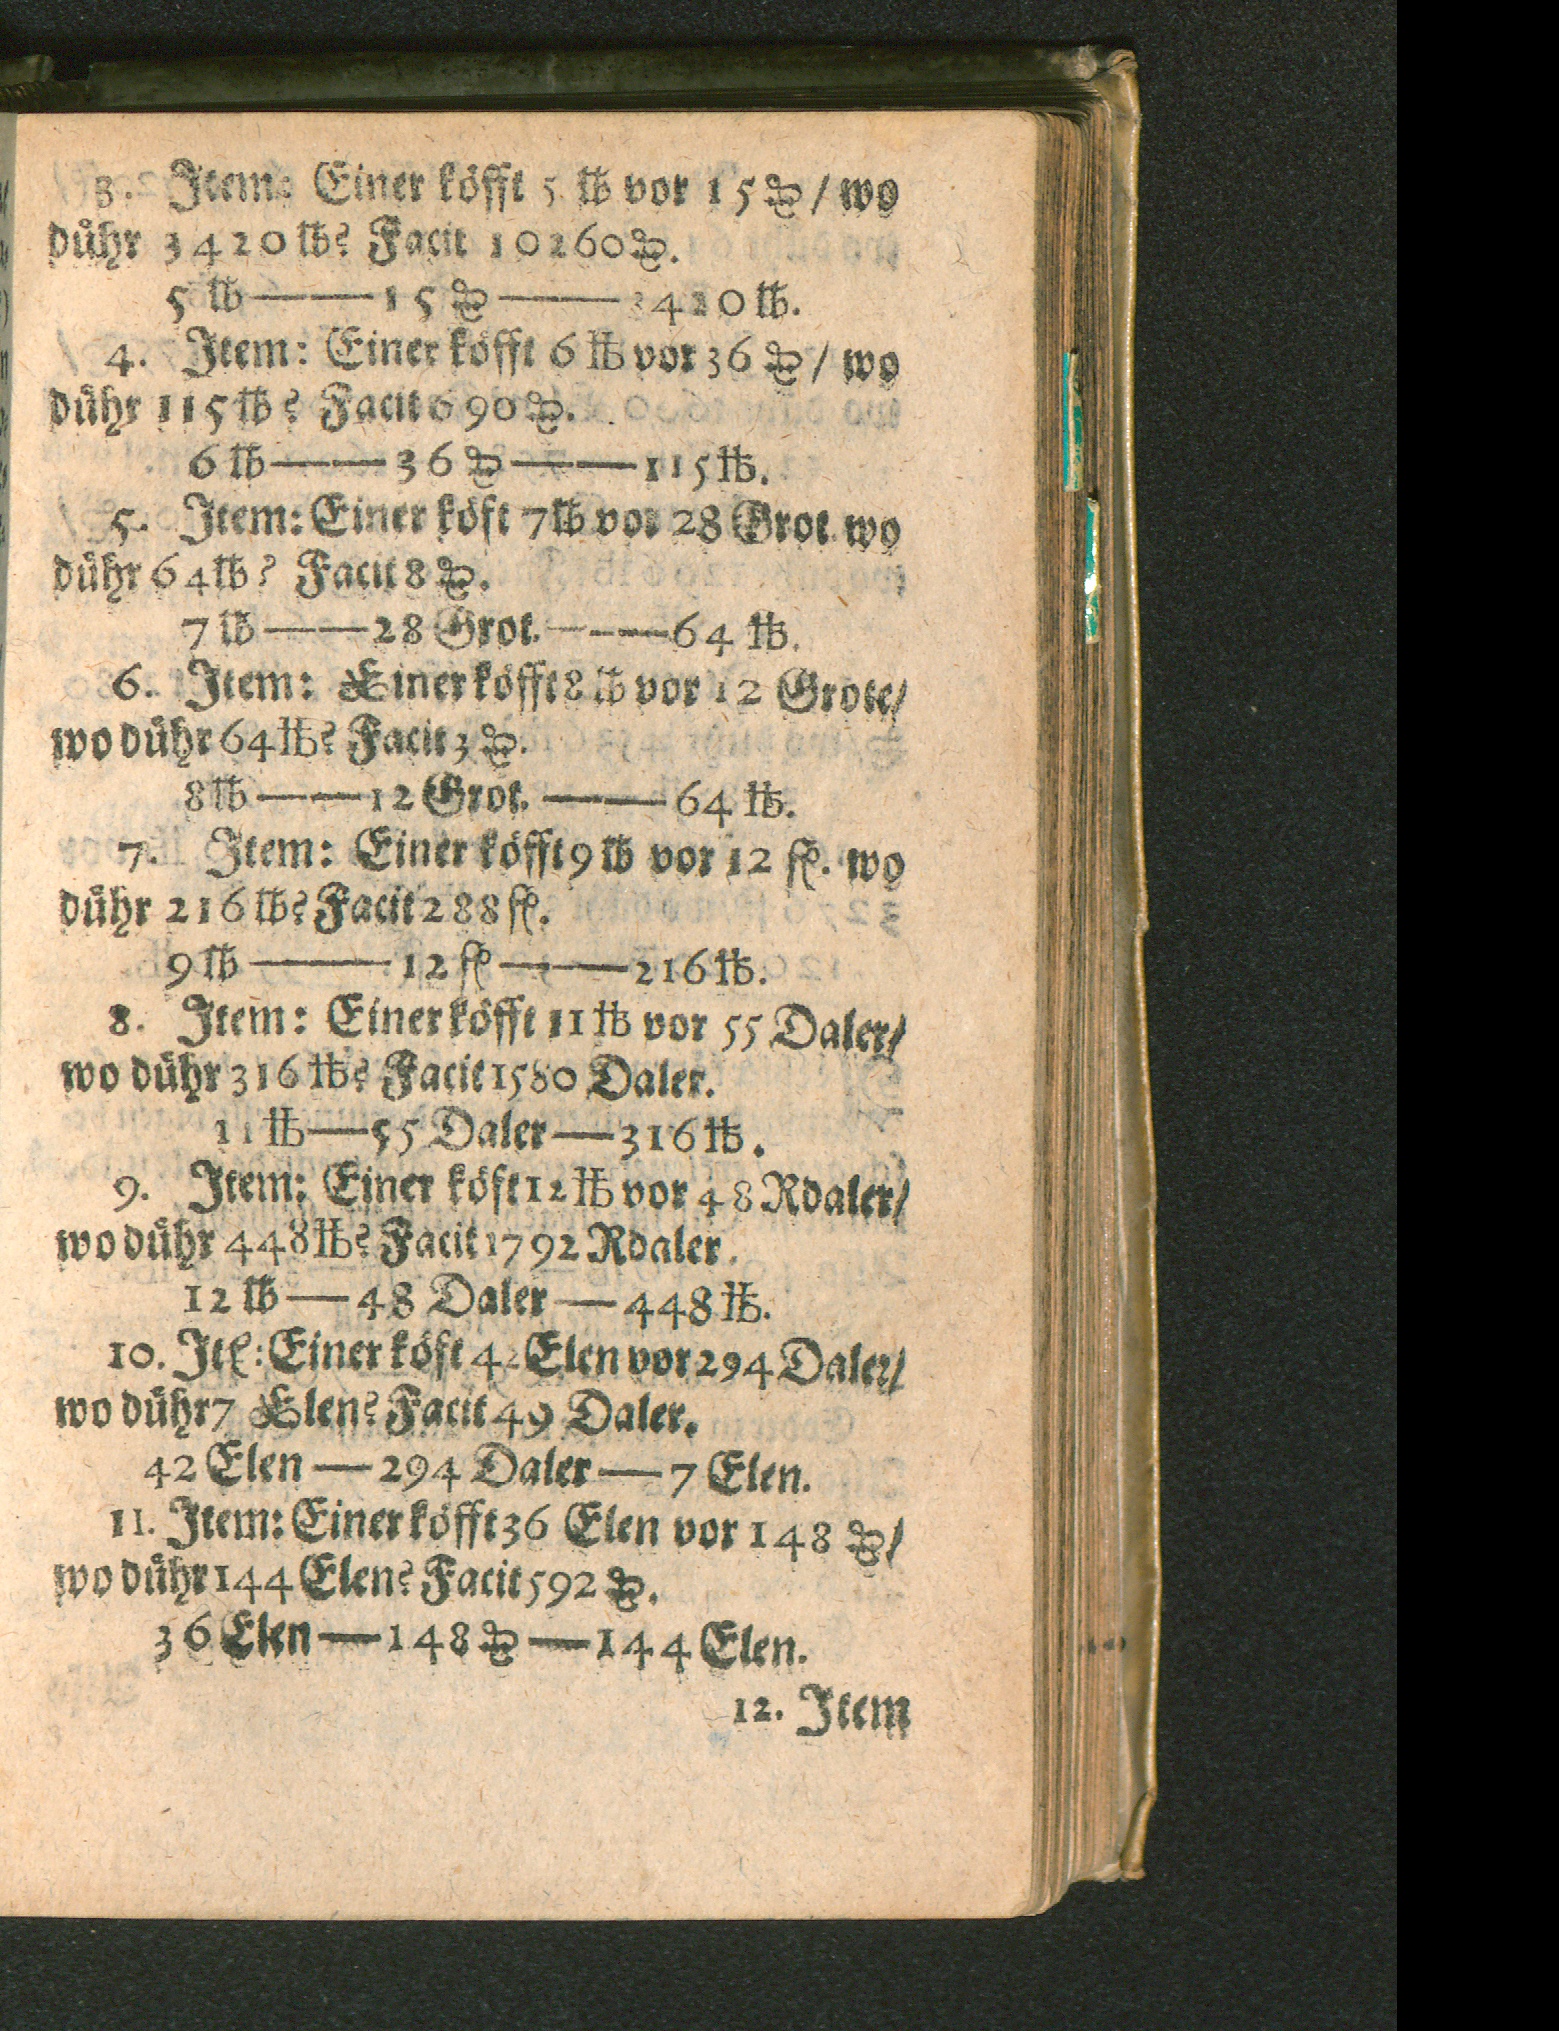 3. Item: Einer köfft 5 ℔ vor 15 ₰ / wo
dühr 3420 ℔? Facit 10260 ₰.
5 ℔ —— 15 ₰ —— 3420 ℔.
4. Item: Einer köfft 6 ℔ vor 36 ₰ / wo
dühr 115 ℔? Facit 690 ₰.
6 ℔ —— 36 ₰ —— 115 ℔.
5. Item: Einer köft 7 ℔ vor 28 Grot wo
dühr 64 ℔? Facit 8 ₰.
7 ℔ —— 28 Grot. —— 64 ℔.
6. Item: Einer köfft 8 ℔ vor 12 Grote/
wo dühr 64 ℔? Facit 3 ₰.
8 ℔ —— 12 Grot. —— 64 ℔.
7. Item: Einer köfft 9 ℔ vor 12 ß. wo
dühr 216 ℔? Facit 288 ß.
9 ℔ —— 12 ß —— 216 ℔.
8. Item: Einer köfft 11 ℔ vor 55 Daler/
wo dühr 316 ℔? Facit 1580 Daler.
11 ℔ — 55 Daler — 316 ℔.
9. Item: Einer köft 12 ℔ vor 48 Rdaler/
wo dühr 448 ℔? Facit 1792 Rdaler.
12 ℔ — 48 Daler — 448 ℔.
10. Itꝭ: Einer köft 42 Elen vor 294 Daler/
wo dühr 7 Elen? Facit 49 Daler.
42 Elen — 294 Daler — 7 Elen.
11. Item: Einer köfft 36 Elen vor 148 ₰/
wo dühr 144 Elen? Facit 592 ₰.
36 Elen — 148 ₰ — 144 Elen.
12. Item